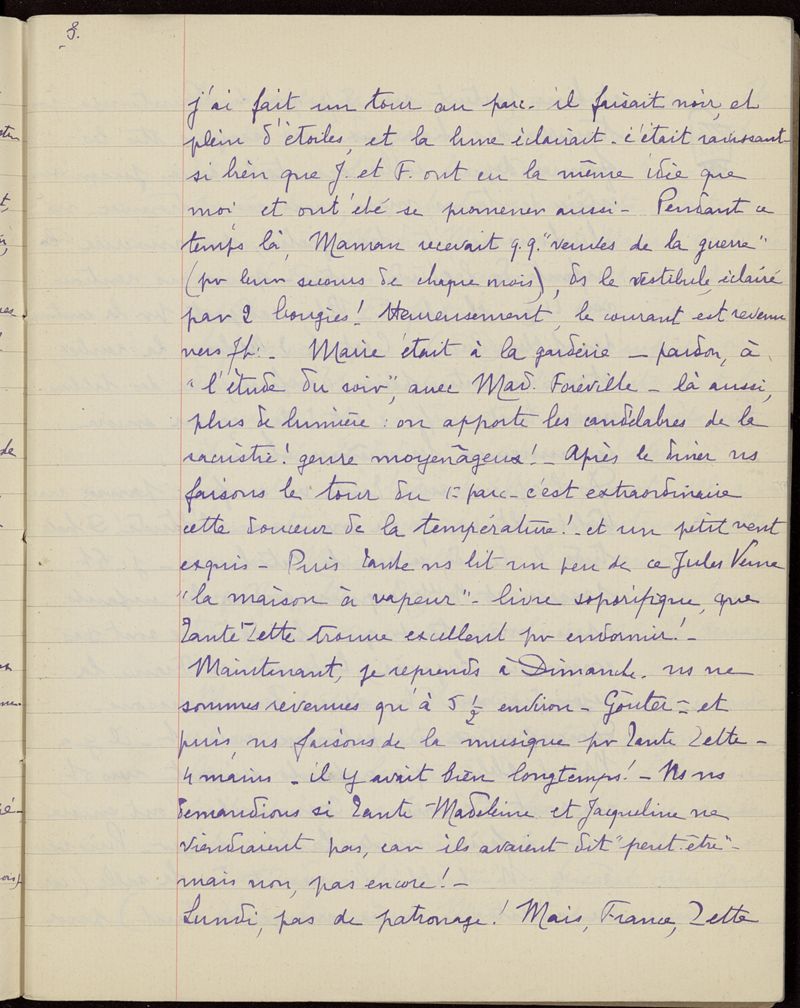 8.
j'ai fait un tour au parc - il faisait noir, et
plein d'étoiles, et la lune éclairait - c'était ravissant -
si bien que J. et F. ont eu la même idée que
moi et ont été se promener aussi - Pendant ce
temps là, Maman recevait q.q. "veuves de la guerre"
(pr leur secours de chaque mois), ds le vestibule, éclairé
par 2 bougies! Heureusement, le courant est revenu
vers 7h: - Marie était à la garderie - pardon, à
"l'étude du soir", avec Mad. Foréville - là aussi,
plus de lumière: on apporte les candélabres de la
sacristie! genre moyenâgeux! - Après le dîner ns
faisons le tour du parc - c'est extraordinaire
cette douceur de la température! - et un petit vent
exquis - Puis Tante ns lit un peu de ce Jules Verne
"la maison à vapeur" - livre soporifique, que
Tante Zette trouve excellent pr endormir! -
Maintenant, je reprends à Dimanche. ns ne
sommes revenues qu'à 5 ½ environ - Goûter - et
puis, ns faisons de la musique pr Tante Zette -
4 mains - il y avait bien longtemps! - Ns ns
demandions si Tante Madeleine et Jacqueline ne
viendraient pas, car ils avaient dit "peut-être" -
mais non, pas encore! -
Lundi, pas de patronage! Mais, France, Zette